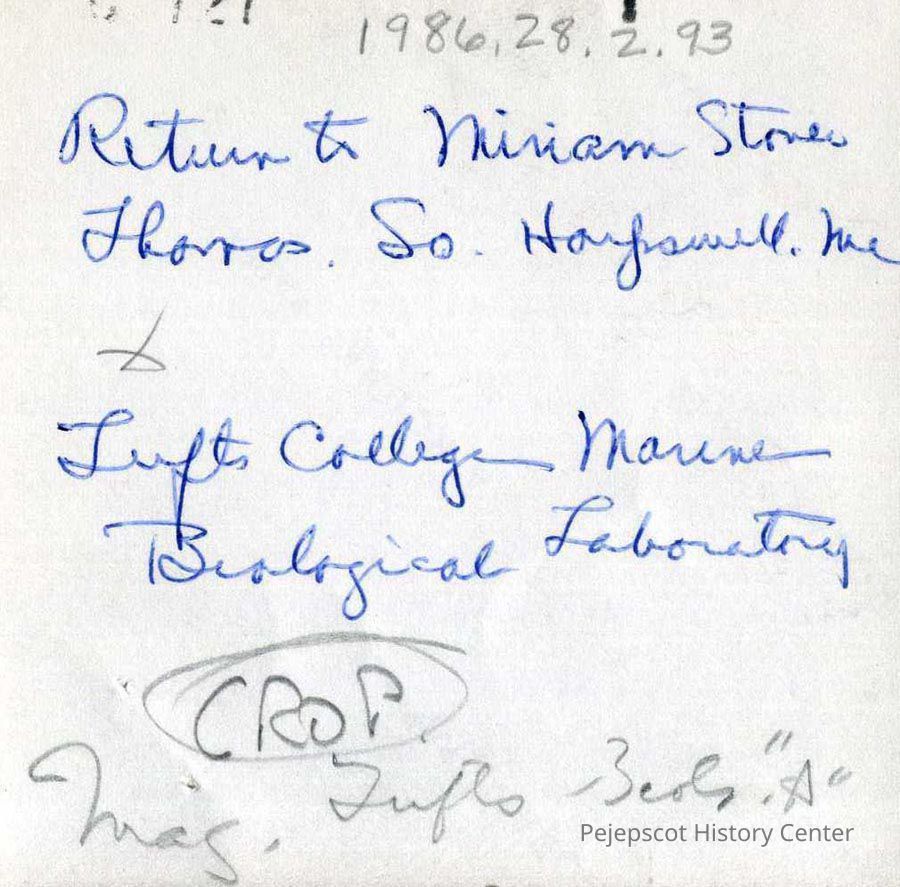 1986.28.2.93
Return to Miriam Stover
Thomas. So. Harpswell. Me
Tufts College Marine
Biological Laboratory
CROP
Mag. Tufts Biol. "A"
Pejepscot History Center